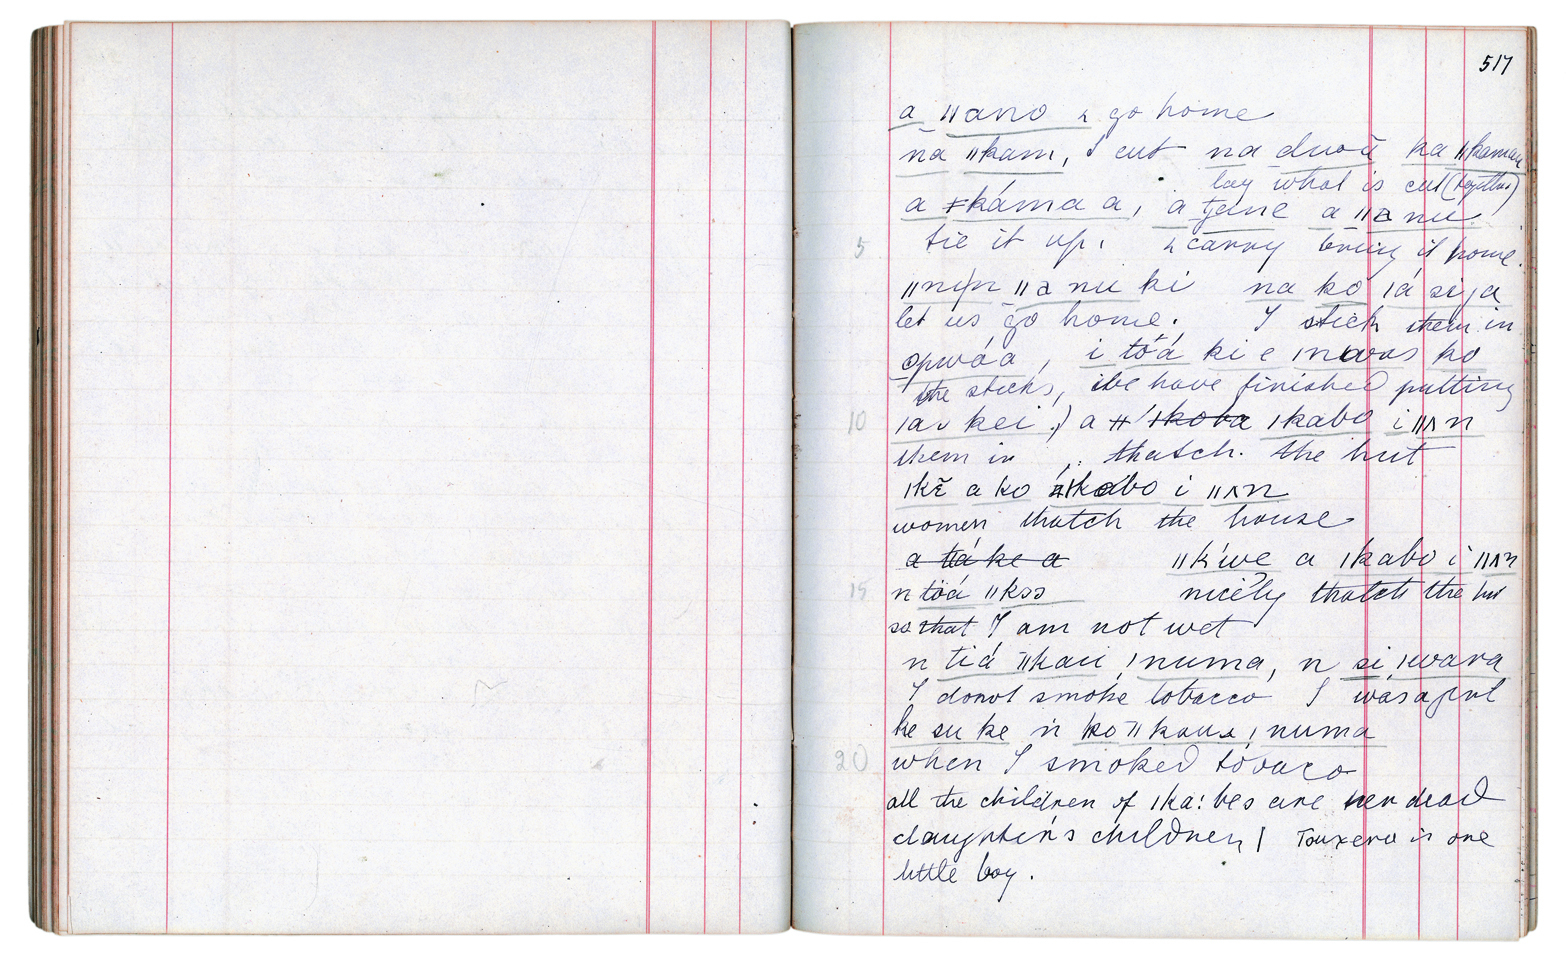 517
a ǁano & go home
na ǁkam, I cut na duoa ka ǁkaman
lay what is cut (together)
a ǂkáma a, a tjane a ǁa nu
5 tie it up, & carry bring it home.
ǁnǀn ǁa nu ki na ko ǀá si ja
let us go home. I stick them in
opwáa, i töá ki e ǀnwas ko
the sticks, we have finished putting
10 ǀa kei, a ǀkoba ǀkabo i ǁʌn
them in thatch. the hut
ǀkẽ a ko ǀkabo i ǁʌn
women thatch the house
a tiá ke a ǁk'we a ǀkabo i ǁʌn
15 n töá ǁkss nicely thatch the hut
so that I am not wet
n tiá ǁkau ǃnuma, n si ǀwara
I do not smoke tobacco I was a girl
ke su ke n ko ǁkaua ǃnuma
20 when I smoked tobaco
all the children of ǀka: bes are her dead
daughter's children, Touxero is one
little boy.